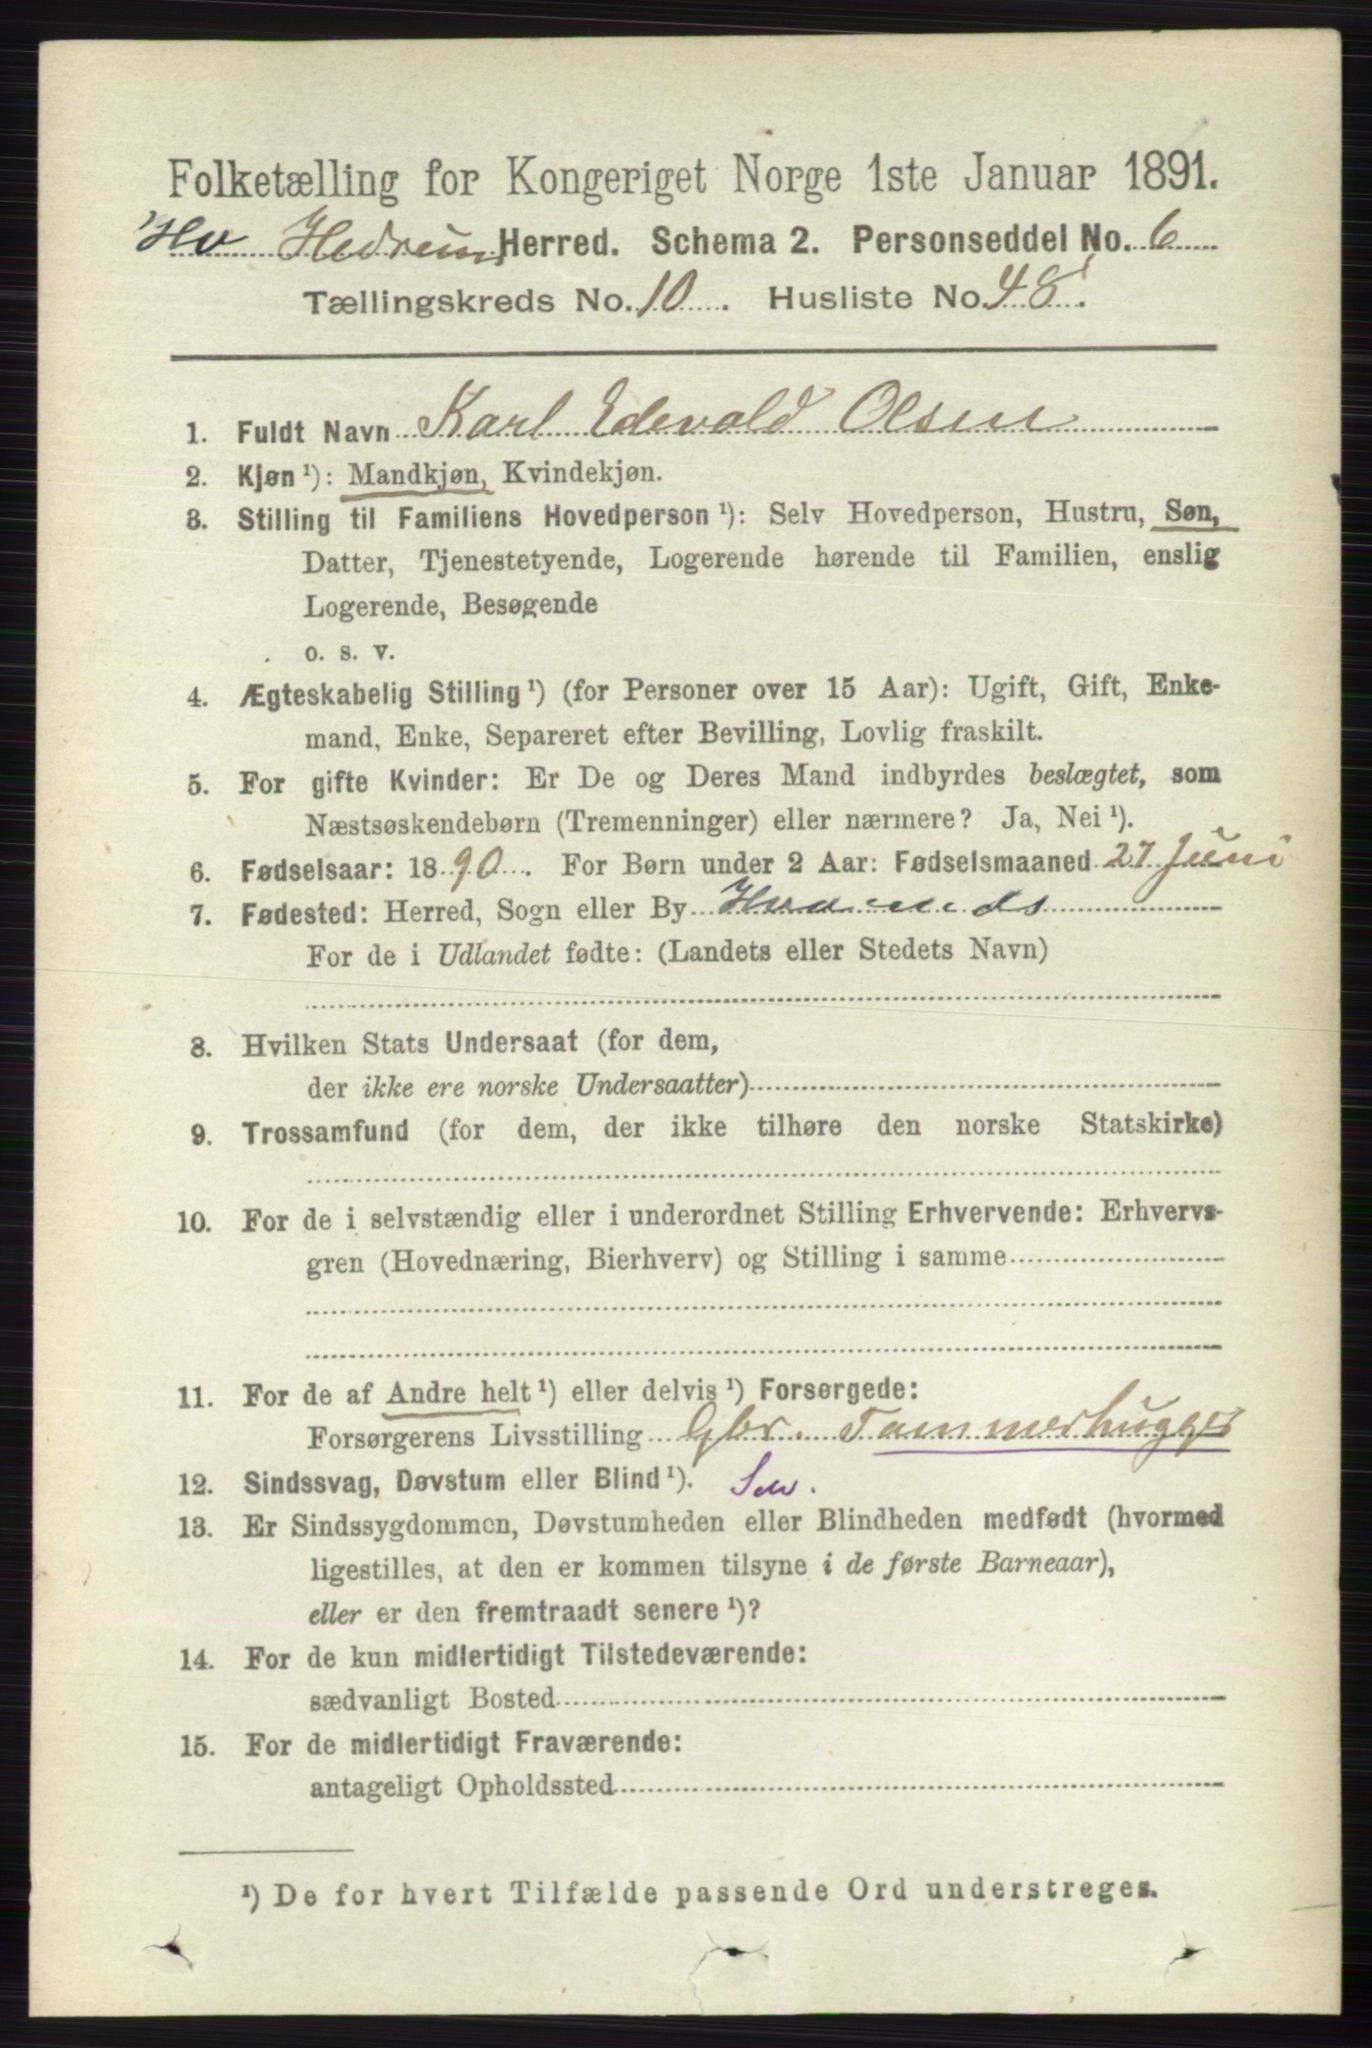 Folketælling for Kongeriget Norge 1ste Januar 1891.
Hv Hedrum Herred. Schema 2. Personseddel No. 6
Tællingskreds No. 10. Husliste No. 48.
1. Fuldt Navn Karl Edevald Olsen
2. Kjøn ¹): Mandkjøn, Kvindekjøn.
3. Stilling til Familiens Hovedperson ¹): Selv Hovedperson, Hustru, Søn,
Datter, Tjenestetyende, Logerende hørende til Familien, enslig
Logerende, Besøgende
o. s. v.
4. Ægteskabelig Stilling ¹) (for Personer over 15 Aar): Ugift, Gift, Enke-
mand, Enke, Separeret efter Bevilling, Lovlig fraskilt.
5. For gifte Kvinder: Er De og Deres Mand indbyrdes beslægtet, som
Næstsøskendebørn (Tremenninger) eller nærmere? Ja, Nei ¹).
6. Fødselsaar: 1890. For Børn under 2 Aar: Fødselsmaaned 27 Juni
7. Fødested: Herred, Sogn eller By
For de i Udlandet fødte: (Landets eller Stedets Navn)
8. Hvilken Stats Undersaat (for dem,
der ikke ere norske Undersaatter)
9. Trossamfund (for dem, der ikke tilhøre den norske Statskirke)
10. For de i selvstændig eller i underordnet Stilling Erhvervende: Erhvervs-
gren (Hovednæring, Bierhverv) og Stilling i samme
11. For de af Andre helt ¹) eller delvis ¹) Forsørgede:
Forsørgerens Livsstilling Gbr. Tømmerhugger
12. Sindssvag, Døvstum eller Blind ¹).
13. Er Sindssygdommen, Døvstumheden eller Blindheden medfødt (hvormed
ligestilles, at den er kommen tilsyne i de første Barneaar),
eller er den fremtraadt senere ¹)?
14. For de kun midlertidigt Tilstedeværende:
sædvanligt Bosted
15. For de midlertidigt Fraværende:
antageligt Opholdssted
¹) De for hvert Tilfælde passende Ord understreges.